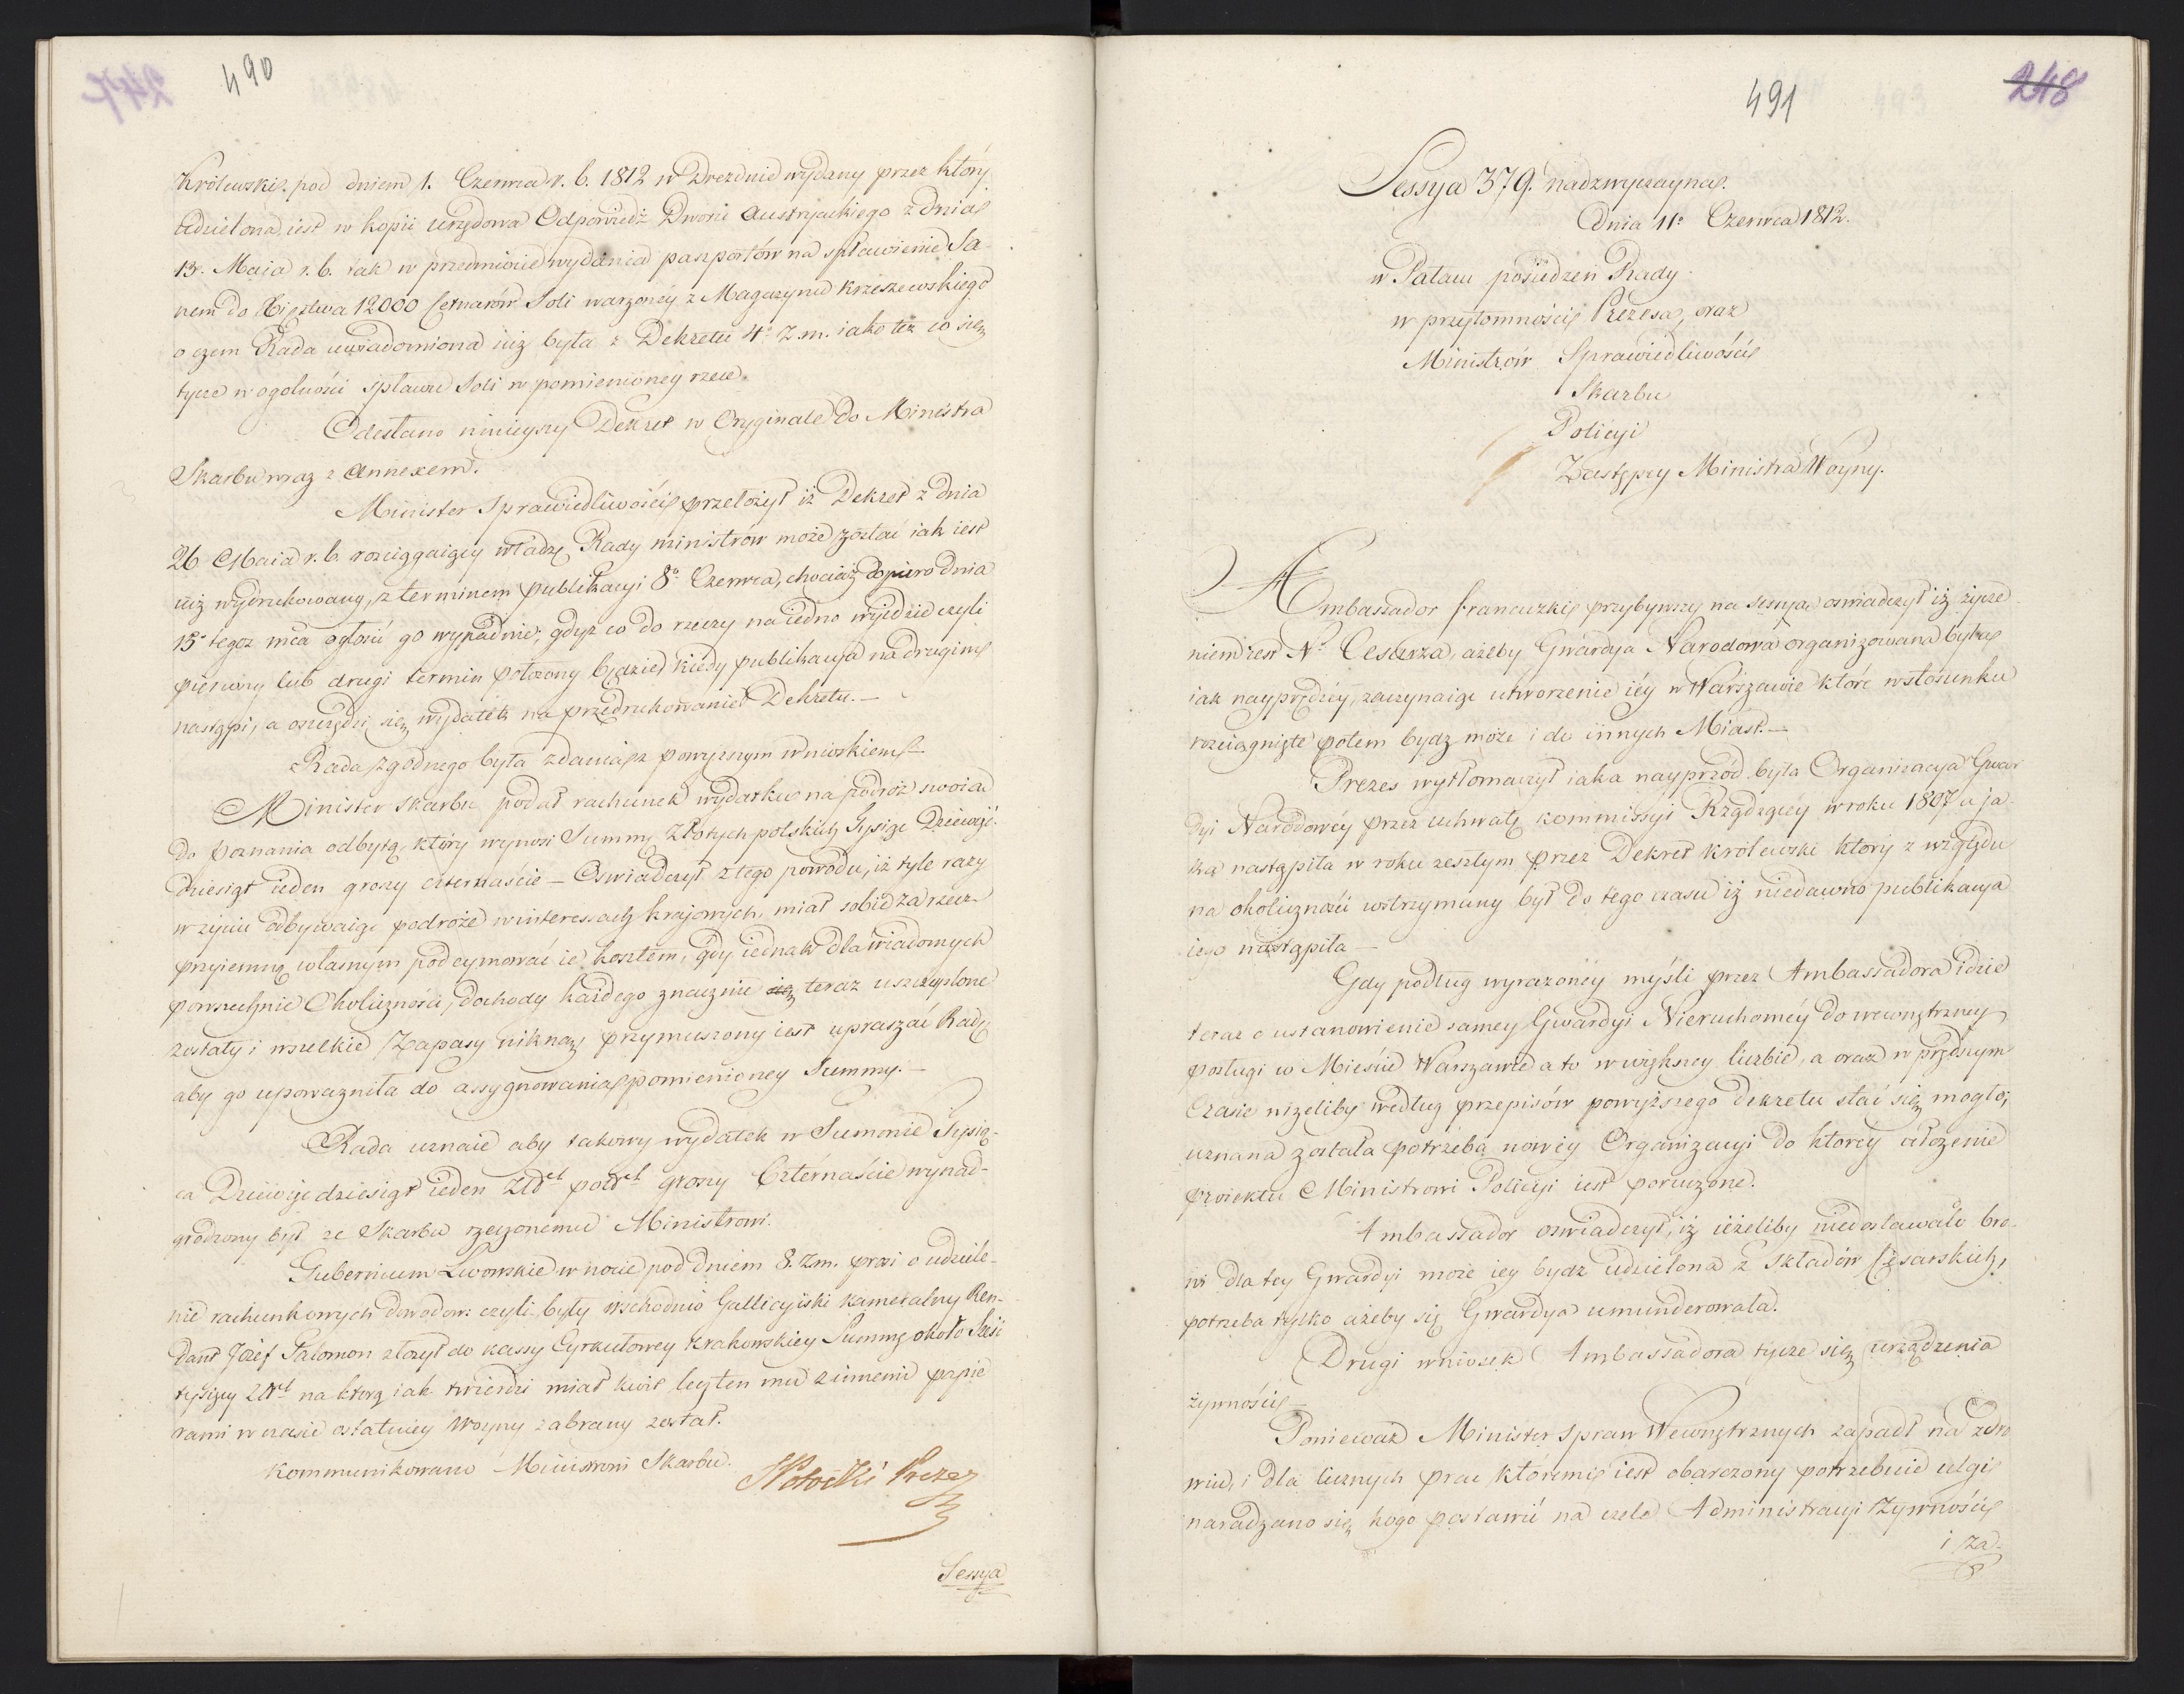 490
Królewski pod dniem 1. Czerwca r. b. 1812 w Dreznie wydany przez który
udzielona iest w kopii urzędowa Odpowiedź Dworu Austryackiego z dnia
13. Maia r. b. tak w przedmiocie wydania paszportów na spławienie Sa-
nem do Xięstwa 12000 Cetnarów Soli warzoney z Magazynu Krzeszewskiego
o czem Rada uwiadomiona iuż była z Dekretu 4° z. m. iako też co się
tycze w ogolności spławu Soli w pomienioney rzece.
Odesłano ninieyszy Dekret w Oryginale do Ministra
Skarbu wraz z Annexem.
Minister Sprawiedliwości przełożył iż Dekret z dnia
26 Maia r. b. rozciągaiący władzę Rady ministrów może zostać iak iest
iuż wydrukowany, z terminem publikacyi 8° Czerwca, chociaż dopiero dnia
15° tegoż mca ogłosić go wypadnie; gdyż co do rzeczy na iedno wyidzie czyli
pierwszy lub drugi termin położony będzie kiedy publikacya na drugim
nastąpi, a oszczędzi się wydatek na przedrukowanie Dekretu.—
Rada zgodnego była zdania z powyższym wnioskiem.—
Minister Skarbu podał rachunek wydatku na podróż swoią
do Poznania odbytą, który wynosi Summę Złotych polskich Tysiąc Dziewięć-
dziesiąt ieden groszy czternaście — Oswiadczył z tego powodu, iż tyle razy
w życiu odbywaiąc podróże w interessach krajowych, miał sobie za rzecz
przyiemną własnym podeymować ie kosztem, gdy iednak dla wiadomych
powszechnie Okoliczności, dochody każdego znacznie teraz uszczuplone
zostały i wszelkie Zapasy nikną, przymuszony iest upraszać Radę
aby go upoważniła do assygnowania pomienioney Summy.—
Rada uznaie aby takowy wydatek w Summie Tysią-
ca Dziewięćdziesiąt ieden Złotch polch groszy Czternaście wynad-
grodzony był ze Skarbu rzeczonemu Ministrowi.
Gubernium Lwowskie w nocie pod dniem 8. z. m. prosi o udziele-
nie rachunkowych dowodow: czyli były wschodnio Gallicyiski kameralny Ren-
dant Józef Salomon złożył do kassy Cyrkułowey Krakowskiey Summę około Sześć
tysięcy Złch na którą iak twierdzi miał kwit, lecz ten mu z innemi papie
rami w czasie ostatniey Woyny zabrany został.
Kommunikowano Ministrowi Skarbu.
Potocki Prezes
Sessya
491
248
Sessya 379. nadzwyczayna.
Dnia 11° Czerwca 1812.
w Pałacu posiedzeń Rady
w przytomności Prezesa, oraz
Ministrów Sprawiedliwości
Skarbu
Policyi
Zastępcy Ministra Woyny.
Ambassador francuzki przybywszy na sessya oswiadczył iż życze
niem iest N° Cesarza, ażeby Gwardya Narodowa organizowana była
iak nayprędzéy, zaczynaiąc utworzenie iéy w Warszawie które w stosunku
rozciągnięte potem bydz może i do innych Miast.—
Prezes wytłomaczył iaka nayprzód była Organizacya Gwar
dyi Narodowéy przez uchwałę kommissyi Rządzącéy w roku 1807 a ja-
ka nastąpiła w roku zeszłym przez Dekret królewski który z względu
na okoliczności wstrzymany był do tego czasu iż niedawno publikacya
iego nastąpiła —
Gdy podług wyrażonéy myśli przez Ambassadora idzie
teraz o ustanowienie samey Gwardyi Nieruchoméy do wewnętrzney
posługi w Mieście Warszawie a to w większey liczbie, a oraz w prędszym
Czasie niżeliby według przepisów powyższego dekretu stać się mogło;
uznana została potrzeba nowéy Organizacyi do któréy ułożenie
proiektu Ministrowi Policyi iest poruczone.
Ambassador oswiadczył, iż ieżeliby niedostawało bro-
ni dla tey Gwardyi może iey bydz udzielona z Składów Cesarskich,
potrzeba tylko ażeby się Gwardya umunderowała.
Drugi wniosek Ambassadora tycze się urządzenia
żywności —
Poniewaz Minister Spraw Wewnętrznych zapadł na zdro
wiu, i dla licznych prac któremi iest obarczony potrzebuie ulgi
naradzano się kogo postawić na czele Administracyi Żywności
i za-